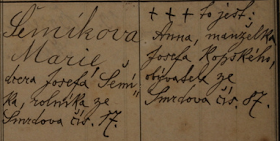 Šemíkova
Marie,
dcera Josefa Šemí-
ka, rolníka ze
Smrdova čís. 17.
+ + + to jest:
Anna, manželka
Josefa Kopského,
obyvatele ze
Smrdova čís. 87.